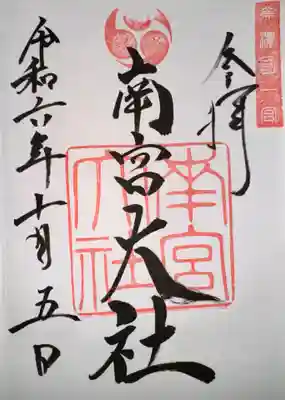 美濃國一宮
奉拝
南宮大社
南宮大社
令和六年十月五日